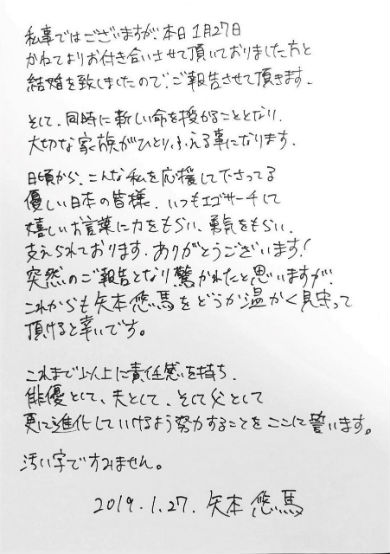 私事ではございますが、本日1月27日
かねてよりお付き合いさせて頂いておりました方と
結婚を致しましたので、ご報告させて頂きます.
そして、同時に新しい命を授かることとなり、
大切な家族がひとり、ふえる事になります.
日頃から、こんな私を応援して下さってる
優しい日本の皆様、いつもエゴサーチして
嬉しいお言葉に力をもらい、勇気をもらい、
支えられております。ありがとうございます!
突然のご報告となり驚かれたと思いますが、
これからも矢本悠馬をどうか温かく見守って
頂けると幸いです。
これまで以上に責任感を持ち、
俳優として、夫として、そして父として
更に進化していけるよう努力することをここに誓います。
汚い字ですみません。
2019.1.27. 矢本悠馬